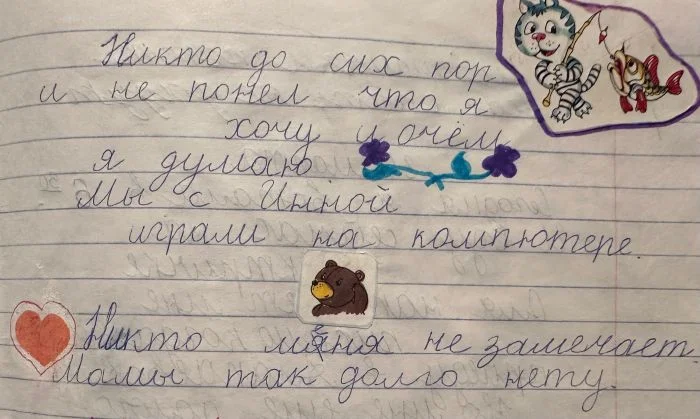 Никто до сих пор
и не понел что я
хочу и очём
я думаю
Мы с Инной
играли на компютере.
Никто меня не замечает.
Мамы так долго нету.